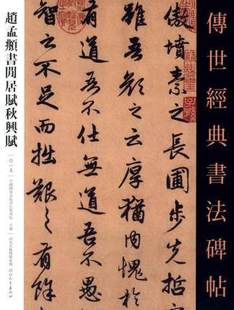 傳世經典書法碑帖
傲墳素之長圃步先哲
雖吾顏之云厚猶內愧於
有道吾不仕無道吾不愚
智之不足而拙艱之有餘
趙孟頫書閒居賦秋興賦